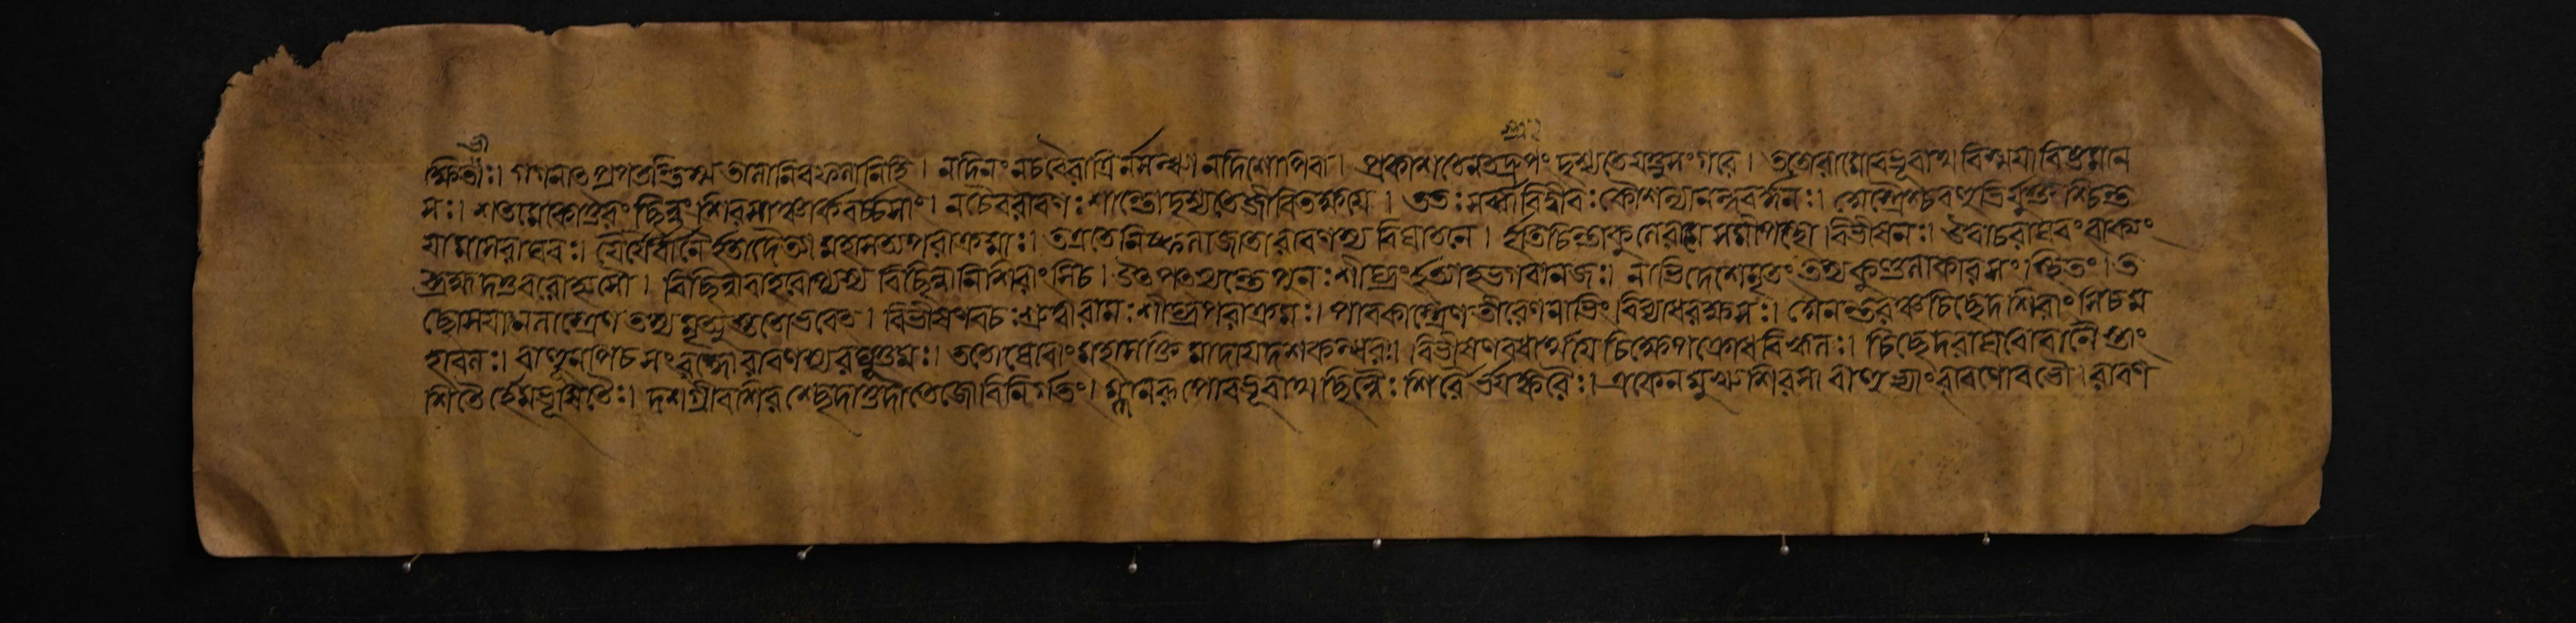 ক্ষিতৌঃ। গগনাৎ প্রপতন্তিস্ম তালানিবফলানিহি। নদিনং নচবৈরাত্রির্নসন্ধ্যা নদিশোপিবা। প্রকাশতে নতদ্রূপং দৃশ্যতে যত্রসংগরে। ততোরামোবভূবাথ বিস্ময়াবিষ্টমান
সঃ। শতমেকোত্তরং ছিন্নং শিরসাঞ্চৈকবর্চ্চসাং। নচৈবরাবণঃ শান্তোদৃশ্যতেজীবিতক্ষয়ে। ততঃ সর্ব্বাস্ত্রবিদ্বীরঃ কৌশল্যানন্দবর্দ্ধনঃ। অস্ত্রৈশ্চবহুভির্যুক্তশ্চিন্ত
য়ামাসরাঘবঃ। যৈর্যৈর্বাণৈর্হতাদৈত্যা মহাসত্ত্বপরাক্রমাঃ। তএতেনিষ্ফলাজাতা রাবণস্য বিঘাতনে। ইতিচিন্তাকুলেরামে সমীপস্থো বিভীষণঃ। উবাচরাঘবংবাক্যং
ব্রহ্মদত্তবরোহ্যসৌ। বিচ্ছিন্নাবাহবোপ্যস্য বিচ্ছিন্নানিশিরাংসিচ। উৎপৎস্যন্তেপুনঃ শীঘ্রং ইত্যাহভগবানজঃ। নাভিদেশেমৃতং তস্য কুণ্ডলাকারসংস্থিতং। ত
চ্ছোসয়ানলাস্ত্রেণ তস্য মৃত্যুস্ততোভবেৎ। বিভীষণবচঃ শ্রুত্বারামঃ শীঘ্রপরাক্রমঃ। পাবকাস্ত্রেণ তীরেণনাভিং বিব্যাধরক্ষসঃ। অনন্তরঞ্চচিচ্ছেদ শিরাংসিচম
হাবলঃ। বাহুনপিচ সংরব্ধো রাবণস্য রঘুত্তমঃ। ততোঘোরাং মহাসক্তি মাদায়দশকন্ধরঃ। বিভীষণবধার্থায় চিক্ষেপ ক্রোধবিহ্বলঃ। চিচ্ছেদরাঘবোবাণৈ স্তাং
শিতৈ র্হেমভূষিতৈঃ। দশগ্রীবশিরশ্ছেদাত্তদাতেজোবিনির্গতং। ম্লানরূপোবভূবাথ ছিন্নৈঃ শিরৈর্ভয়ঙ্করৈঃ। একেনমুখ্যশিরসা বাহুভ্যাং রাবণোবভৌ। রাবণ